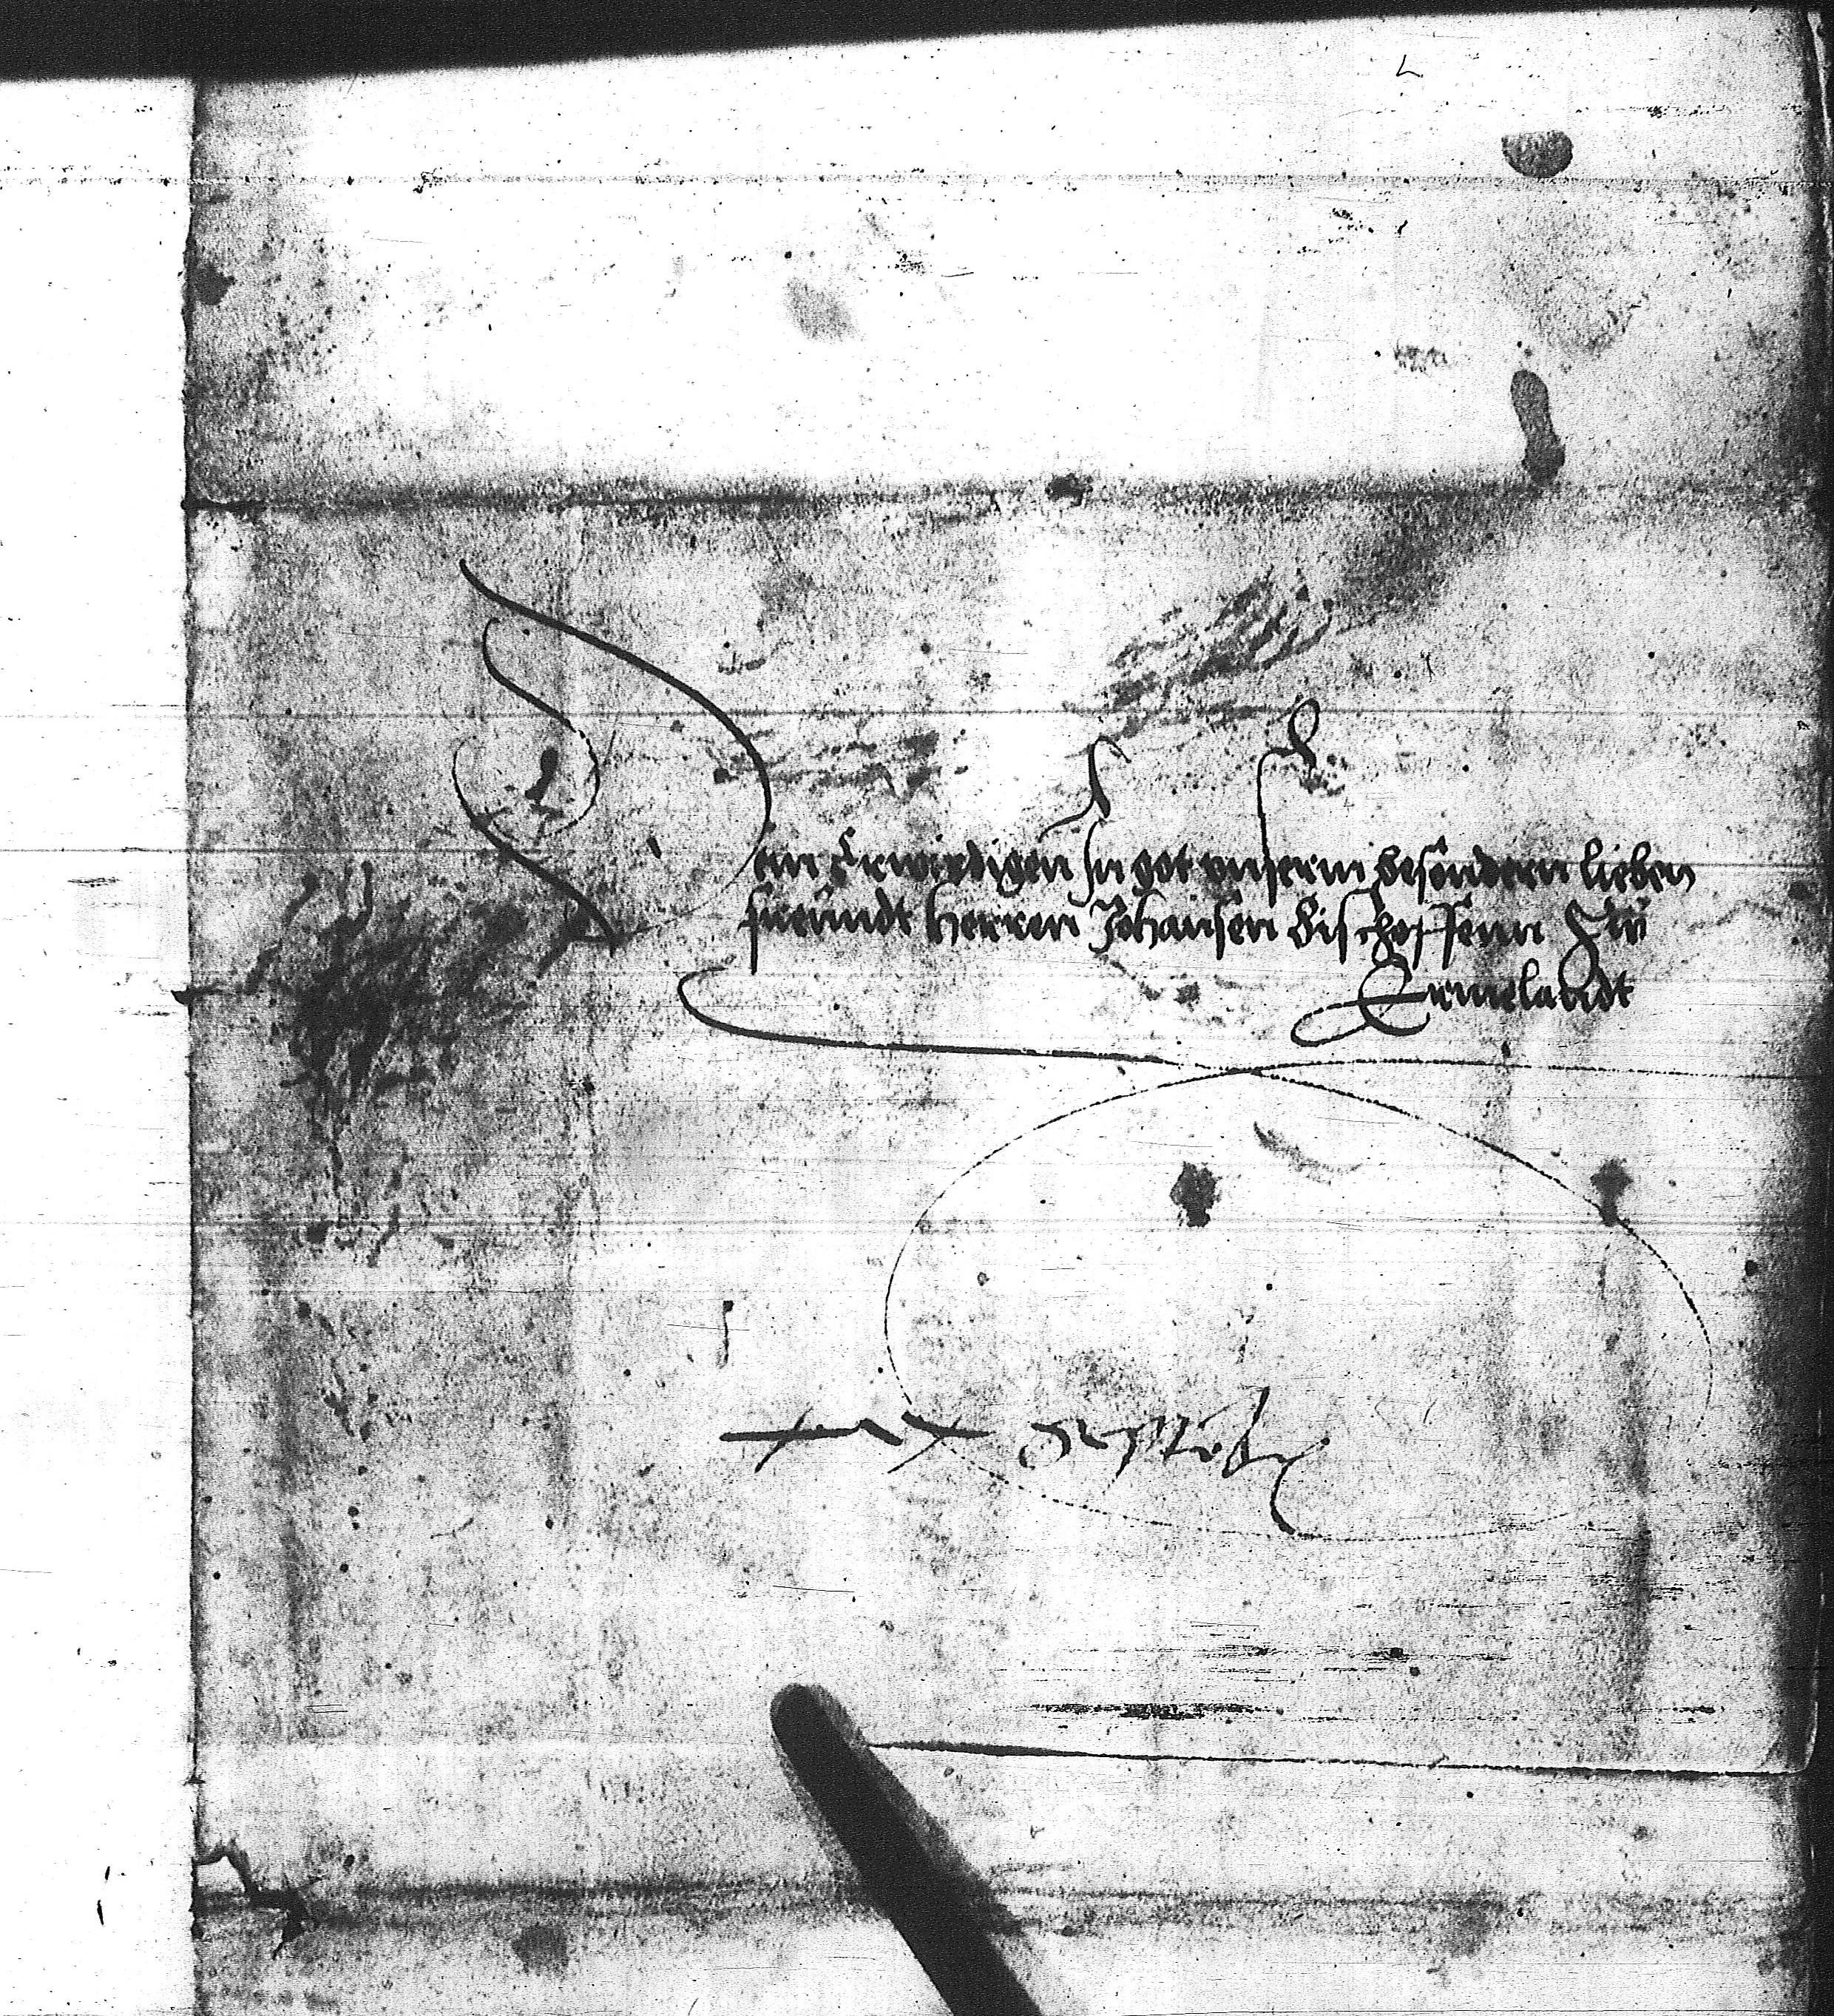 Dem Erwirdigen In got unserm besondern lieben
freundt Herren Johansen Bischoffenn Zw
Ermelandt